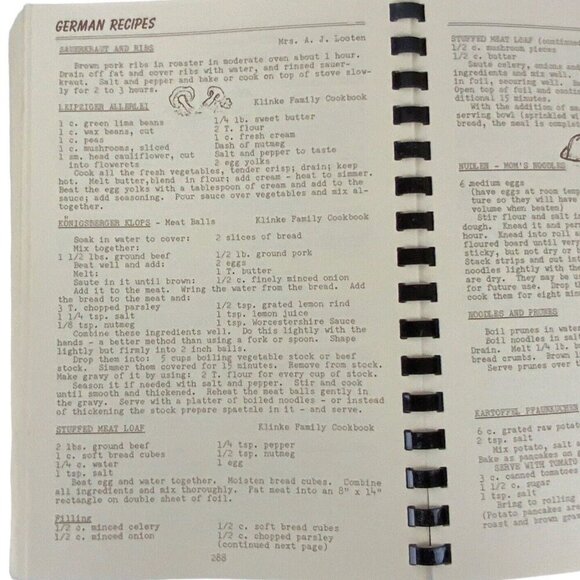 GERMAN RECIPES
Mrs. A. J. Looten
SAUERKRAUT AND RIBS
Brown pork ribs in roaster in moderate oven about 1 hour.
Drain off fat and cover ribs with water, and rinsed sauer-
kraut. Salt and pepper and bake or cook on top of stove slow-
ly for 2 to 3 hours.
LEIPZIGER ALLERLEI Klinke Family Cookbook
1 c. green lima beans 1/4 lb. sweet butter
1 c. wax beans, cut 2 T. flour
1 c. peas 1 c. fresh cream
1 c. mushrooms, sliced Dash of nutmeg
1 sm. head cauliflower, cut Salt and pepper to taste
into flowerets 2 egg yolks
Cook all the fresh vegetables, tender crisp; drain; keep
hot. Melt butter, blend in flour; add cream - heat to simmer.
Beat the egg yolks with a tablespoon of cream and add to the
sauce; add seasoning. Pour sauce over vegetables and mix al-
together.
KÖNIGSBERGER KLOPS - Meat Balls Klinke Family Cookbook
Soak in water to cover: 2 slices of bread
Mix together:
1 1/2 lbs. ground beef 1/2 lb. ground pork
Beat well and add: 2 eggs
Melt: 1 T. butter
Saute in it until brown: 1/2 c. finely minced onion
Add it to the meat. Wring the water from the bread. Add
the bread to the meat and:
3 T. chopped parsley 1/2 tsp. grated lemon rind
1 1/4 tsp. salt 1 tsp. lemon juice
1/8 tsp. nutmeg 1 tsp. Worcestershire Sauce
Combine these ingredients well. Do this lightly with the
hands - a better method than using a fork or spoon. Shape
lightly but firmly into 2 inch balls.
Drop them into: 5 cups boiling vegetable stock or beef
stock. Simmer them covered for 15 minutes. Remove from stock.
Make gravy of it by using: 2 T. flour for every cup of stock.
Season it if needed with salt and pepper. Stir and cook
until smooth and thickened. Reheat the meat balls gently in
the gravy. Serve with a platter of boiled noodles - or instead
of thickening the stock prepare spaetele in it - and serve.
STUFFED MEAT LOAF Klinke Family Cookbook
2 lbs. ground beef 1/4 tsp. pepper
1 c. soft bread cubes 1/2 tsp. nutmeg
1/4 c. water 1 egg
1 tsp. salt
Beat egg and water together. Moisten bread cubes. Combine
all ingredients and mix thoroughly. Pat meat into an 8" x 14"
rectangle on double sheet of foil.
Filling
1/2 c. minced celery 1/2 c. soft bread cubes
1/2 c. minced onion 1/2 c. chopped parsley
(continued next page)
288
STUFFED MEAT LOAF (continued
1/2 c. mushroom pieces
1/2 c. butter
Saute celery, onions and
ingredients and mix well.
in foil, securing well. Ba
Open top of foil and contin
ditional 15 minutes.
With the addition of sa
serving bowl (sprinkled wit
bread, the meal is complete
NUDLEN - MOM'S NOODLES
6 medium eggs
(have eggs at room temp
ture so they will have
volume when beaten)
Stir flour and salt in
dough. Knead it and perm
hour. Knead into roll a
floured board until very
sticky, but not dry or
Stack strips and cut int
noodles lightly with the
are dry. They may be u
for future use. Drop t
cook them for eight mi
NOODLES AND PRUNES
Boil prunes in water
Boil noodles in salt
Drain. Melt 1/4 lb. b
bread crumbs. Brown
Serve prunes over t
KARTOFFEL PFANNKUCHEN
6 c. grated raw potato
2 tsp. salt
Mix potato, salt
Bake as pancakes on g
SERVE WITH TOMATO
3 c. canned tomatoes
1 1/2 c. sugar
1 tsp. salt
Bring to rolling
(Potato pancakes are
roast and brown grav